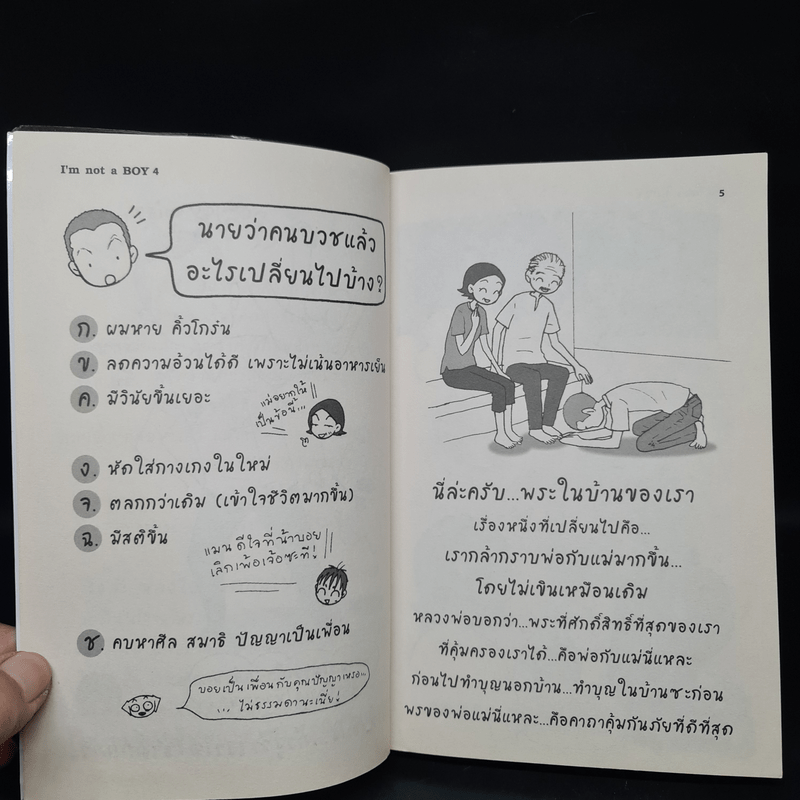 I'm not a BOY 4
นายว่าคนบวชแล้ว
อะไรเปลี่ยนไปบ้าง?
ก. ผมหาย คิ้วโกร๋น
ข. ลดความอ้วนได้ดี เพราะไม่เน้นอาหารเย็น
ค. มีวินัยขึ้นเยอะ
แม่อยากให้
เป็นข้อนี้...
ง. หัดใส่กางเกงในใหม่
จ. ตลกกว่าเดิม (เข้าใจชีวิตมากขึ้น)
ฉ. มีสติขึ้น
แมน ดีใจที่น้าบอย
เลิกเพ้อเจ้อซะที!
ช. คบหาศีล สมาธิ ปัญญาเป็นเพื่อน
บอยเป็นเพื่อนกับคุณปัญญาเหรอ...
... ไม่ธรรมดานะเนี่ย!
5
นี่ล่ะครับ...พระในบ้านของเรา
เรื่องหนึ่งที่เปลี่ยนไปคือ...
เรากล้ากราบพ่อกับแม่มากขึ้น...
โดยไม่เขินเหมือนเดิม
หลวงพ่อบอกว่า...พระที่ศักดิ์สิทธิ์ที่สุดของเรา
ที่คุ้มครองเราได้...คือพ่อกับแม่นี่แหละ
ก่อนไปทำบุญนอกบ้าน...ทำบุญในบ้านซะก่อน
พรของพ่อแม่นี่แหละ...คือคาถาคุ้มกันภัยที่ดีที่สุด